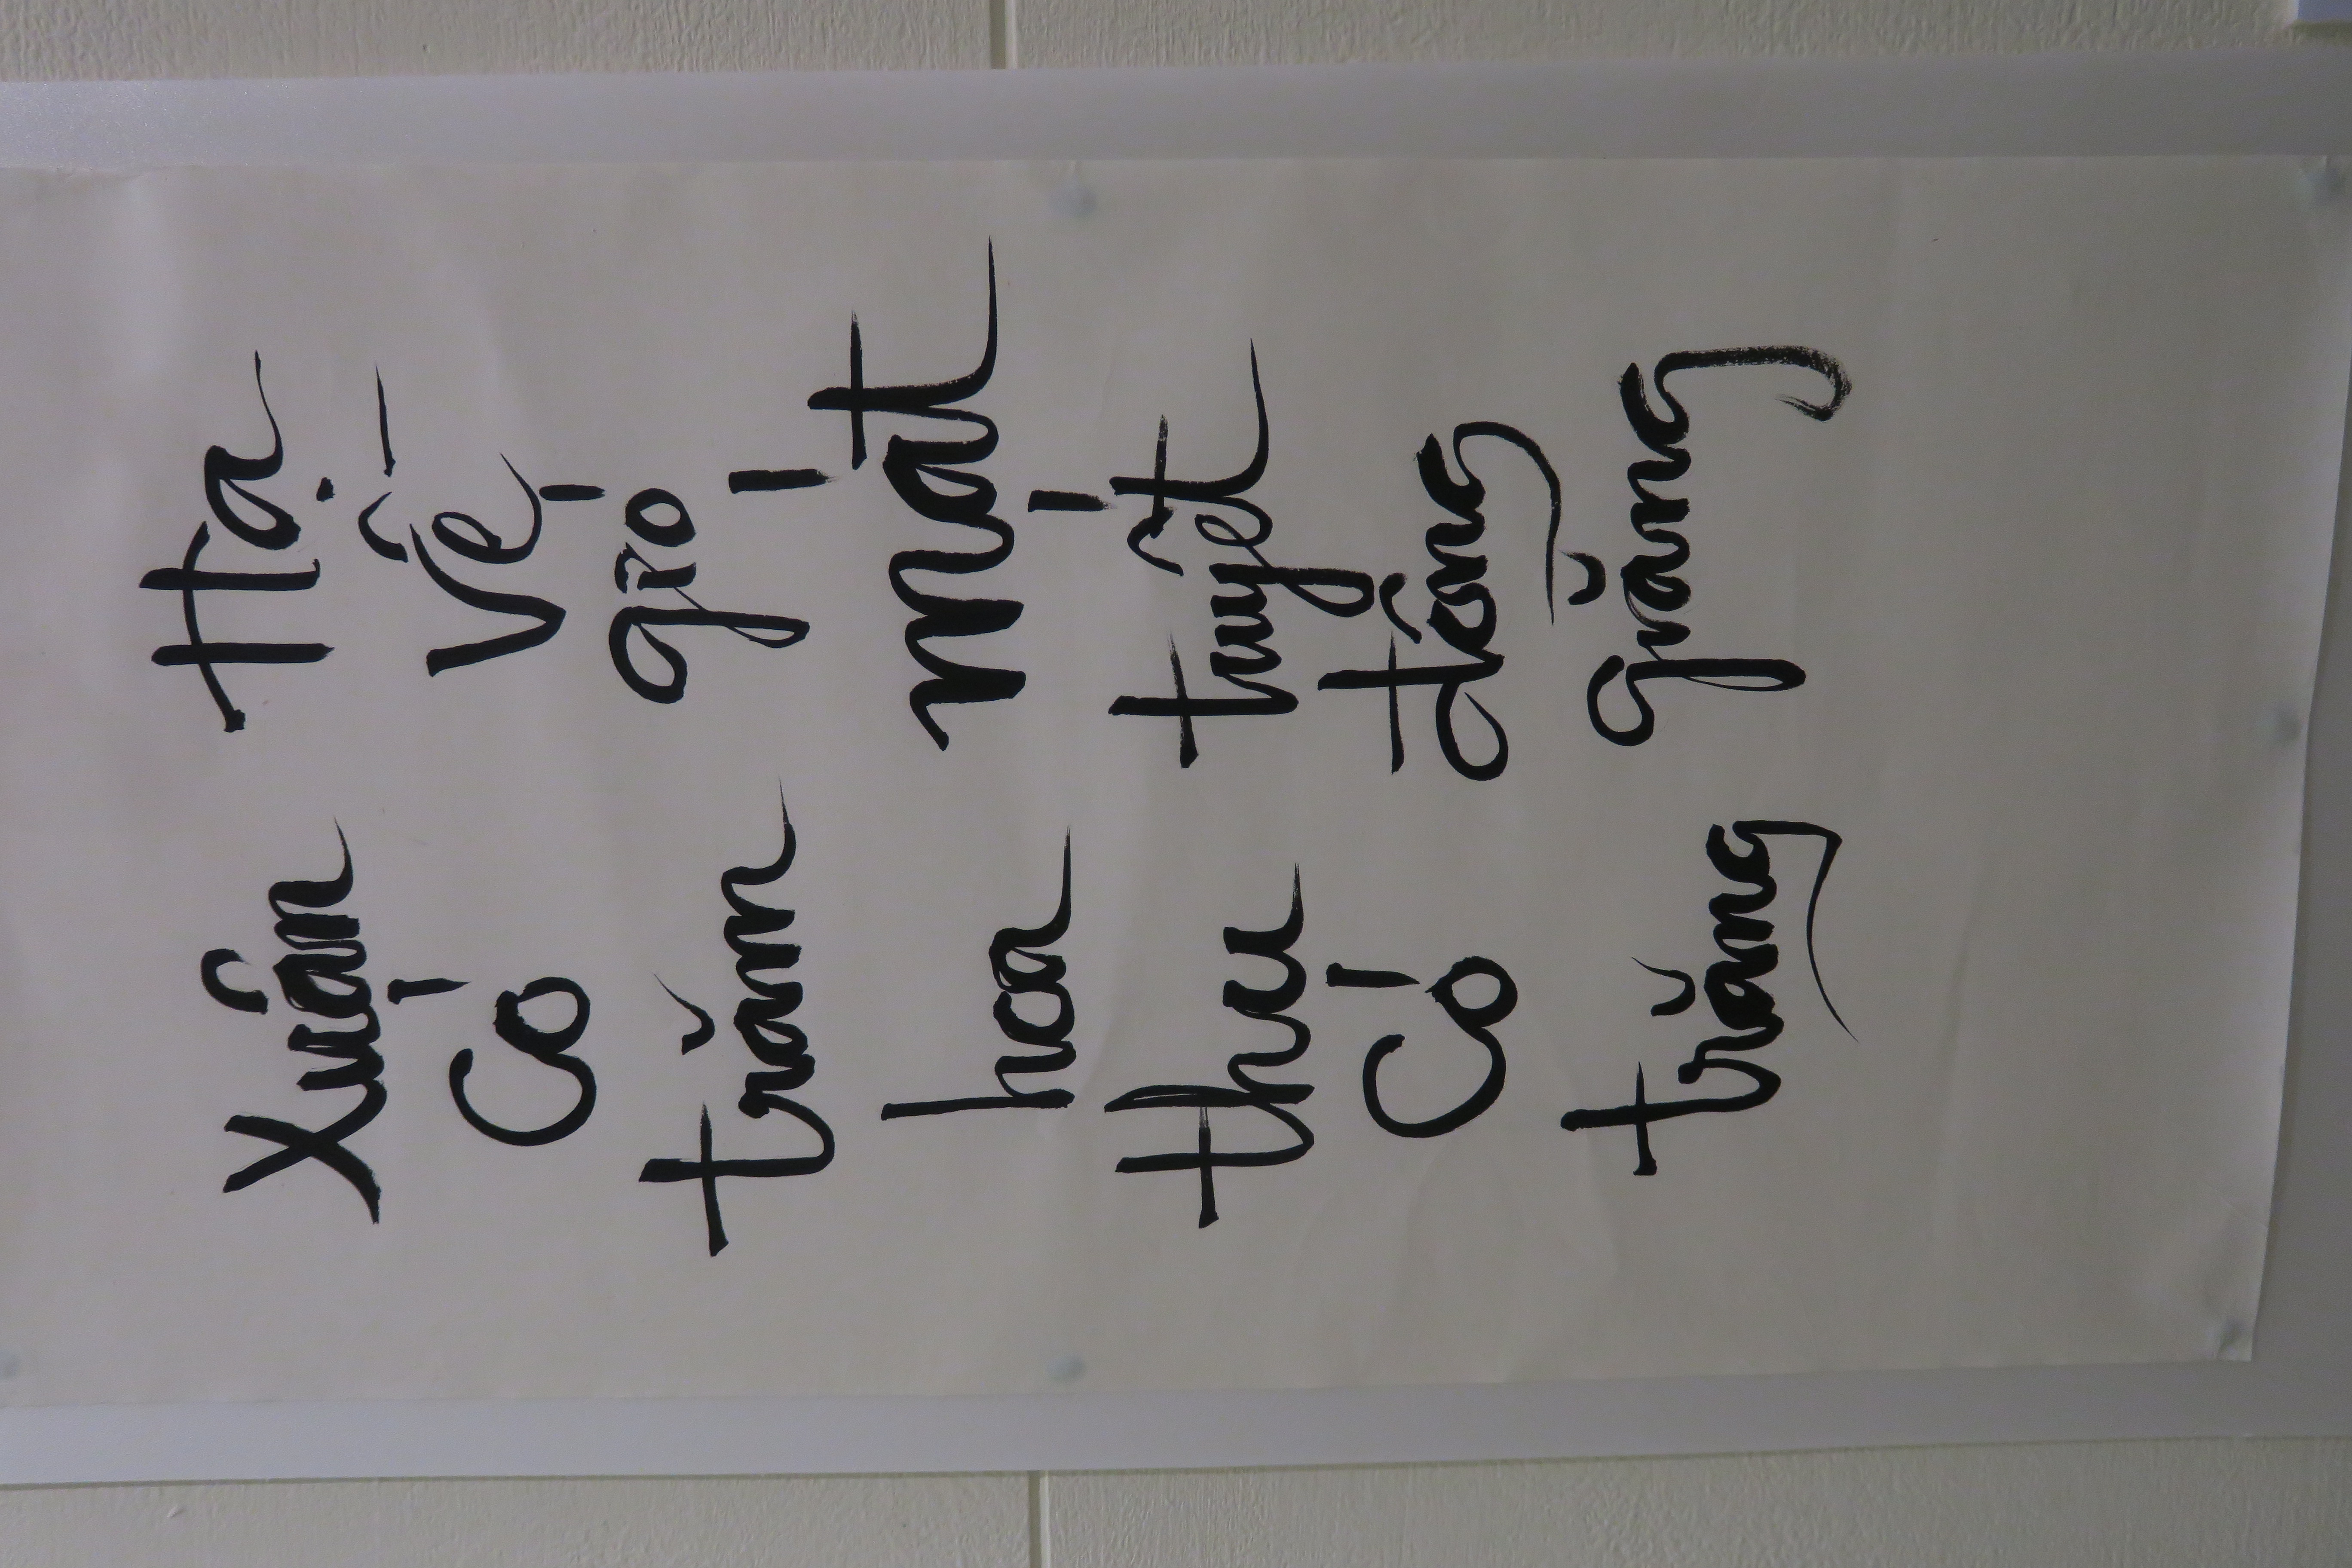 Xuân
Có
trăm
hoa
thu
Có
trăng
Hạ
Về
gió
mát
tuyết
đông
giăng